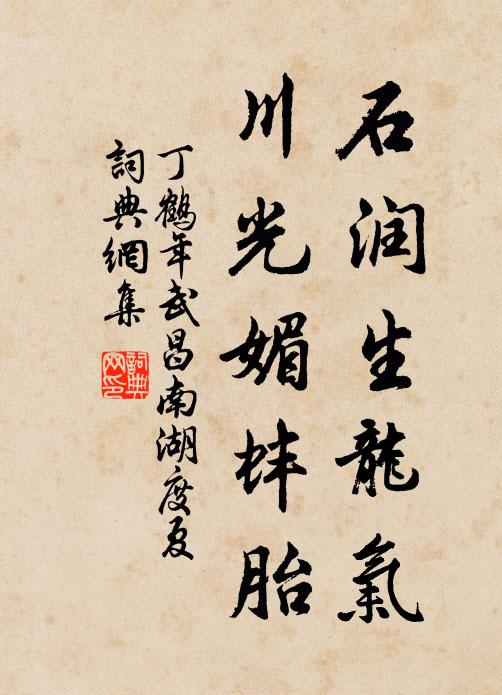 石润生龍氣
川光媚蚌胎
丁鶴年武昌南湖度夏
詞典網集
詞典网印